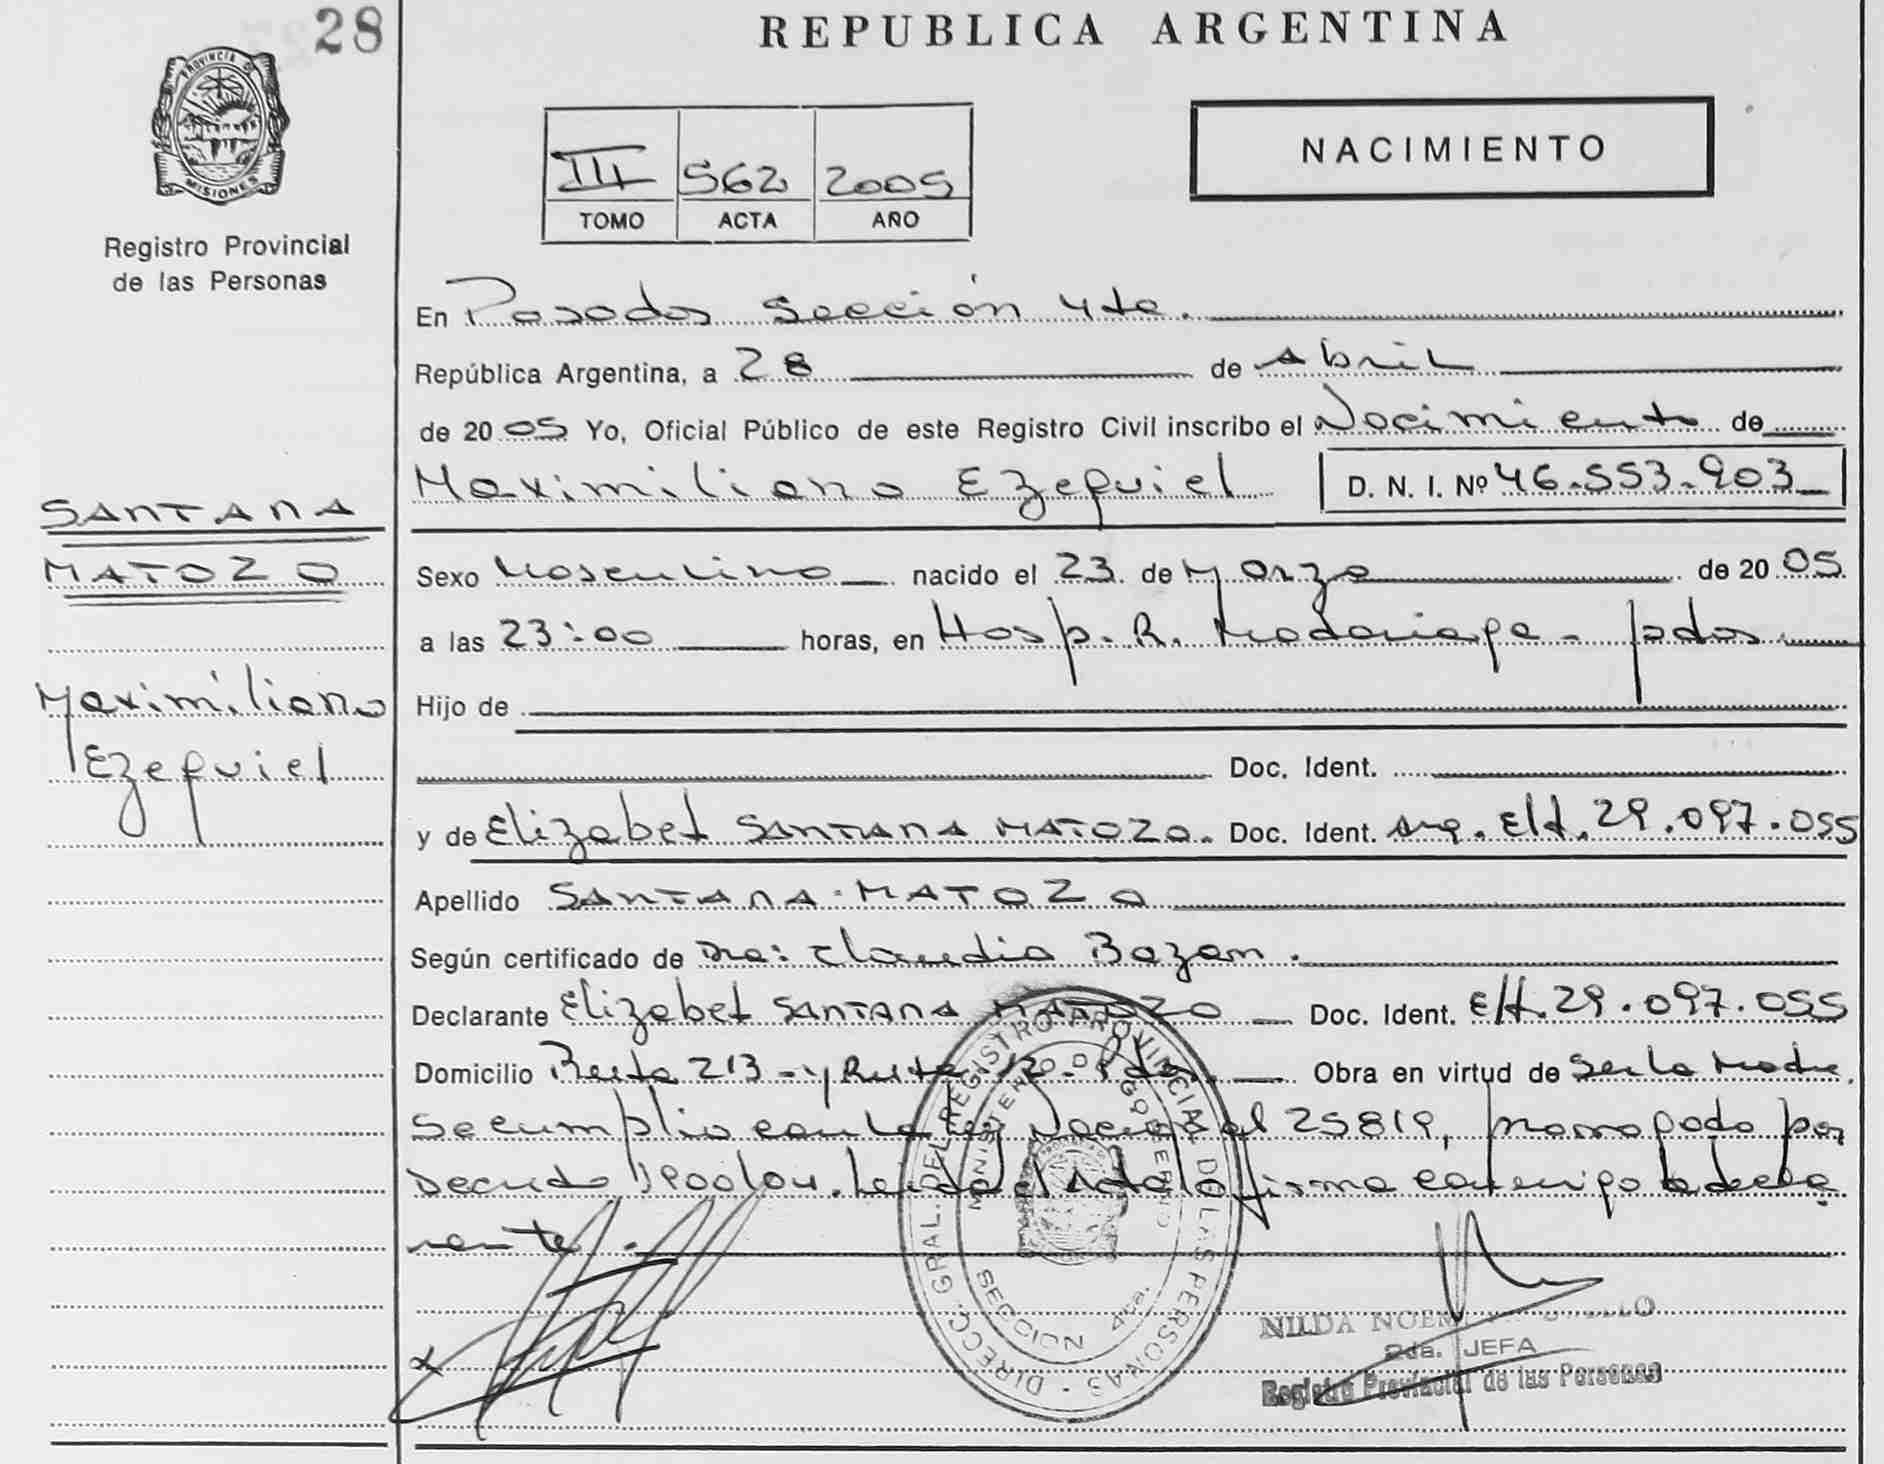 28
REPUBLICA ARGENTINA
PROVINCIA DE MISIONES
Registro Provincial
de las Personas
III 562 2005
TOMO ACTA AÑO
NACIMIENTO
En Posadas Sección 4ta.
República Argentina, a 28 de Abril
de 2005 Yo, Oficial Público de este Registro Civil inscribo el Nacimiento de
Maximiliano Ezequiel D. N. I. Nº 46.553.903
SANTANA
MATOZO
Maximiliano
Ezequiel
Sexo Masculino nacido el 23 de Marzo de 2005
a las 23:00 horas, en Hosp. R. Madariaga - Pdas
Hijo de
Doc. Ident.
y de Elizabet SANTANA MATOZO. Doc. Ident. Arg. 29.097.055
Apellido SANTANA MATOZO
Según certificado de Dra: Claudia Bazan.
Declarante Elizabet SANTANA MATOZO Doc. Ident. 29.097.055
Domicilio Ruta 213 - y Ruta Obra en virtud de Ser la Madre.
Se cumplio con la Ley Nacional 25819, por
Decreto Leida el Acta la firma conmigo la decla
rante.
DIRECC. GRAL. DEL REGISTRO PROVINCIAL DE LAS PERSONAS
MINISTERIO GOBIERNO
SECCION 4ta.
NILDA NOEMI
2da. JEFA
Registro Provincial de las Personas